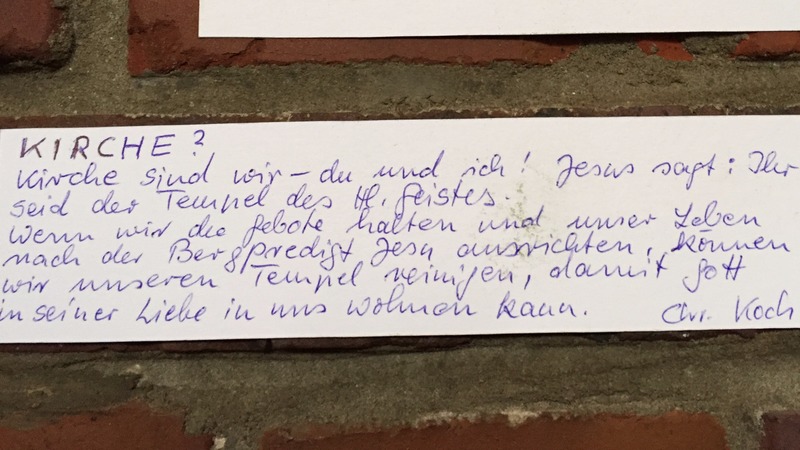 KIRCHE?
Kirche sind wir – du und ich! Jesus sagt: Ihr
seid der Tempel des Hl. Geistes.
Wenn wir die Gebote halten und unser Leben
nach der Bergpredigt Jesu ausrichten, können
wir unseren Tempel reinigen, damit Gott
in seiner Liebe in uns wohnen kann. Chr. Koch